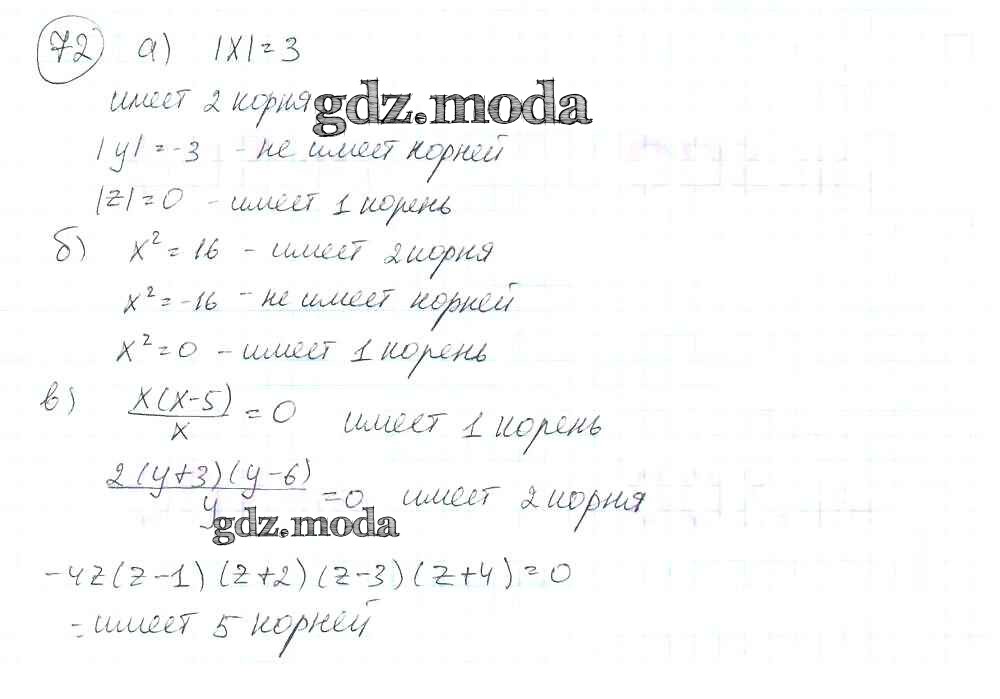 72 а) |x| = 3
имеет 2 корня gdz.moda
|y| = -3 - не имеет корней
|z| = 0 - имеет 1 корень
б) x² = 16 - имеет 2 корня
x² = -16 - не имеет корней
x² = 0 - имеет 1 корень
в) x(x-5)/x = 0 имеет 1 корень
2(y+3)(y-6)/y = 0 имеет 2 корня
gdz.moda
-4z(z-1)(z+2)(z-3)(z+4) = 0
- имеет 5 корней